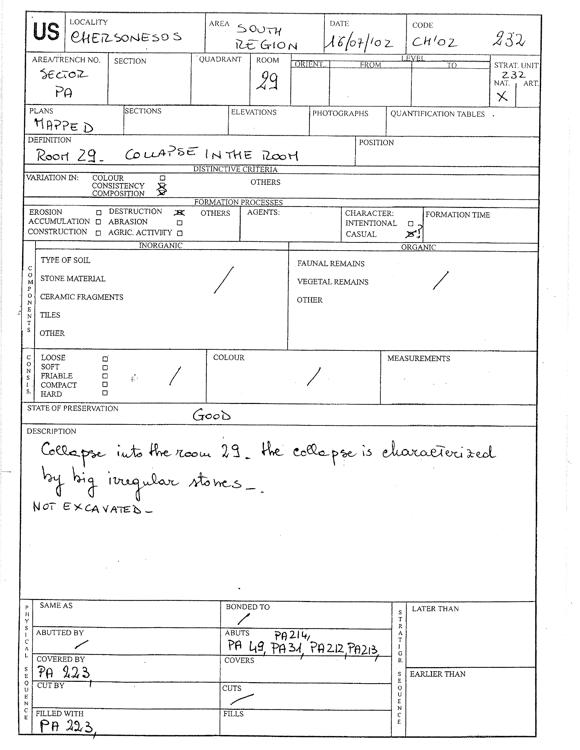 US
LOCALITY
CHERSONESOS
AREA SOUTH
REGION
DATE
16/07/02
CODE
CH'02
232
AREA/TRENCH NO.
SECTOR
PA
SECTION
QUADRANT
ROOM
29
LEVEL
ORIENT. FROM TO
STRAT. UNIT
232
NAT. ART.
X
PLANS
MAPPED
SECTIONS
ELEVATIONS
PHOTOGRAPHS
QUANTIFICATION TABLES
DEFINITION
ROOM 29_ COLLAPSE IN THE ROOM
POSITION
DISTINCTIVE CRITERIA
VARIATION IN: COLOUR
CONSISTENCY
COMPOSITION
OTHERS
FORMATION PROCESSES
EROSION DESTRUCTION OTHERS
ACCUMULATION ABRASION
CONSTRUCTION AGRIC. ACTIVITY
AGENTS:
CHARACTER:
INTENTIONAL ?
CASUAL !
FORMATION TIME
COMPONENTS
INORGANIC
TYPE OF SOIL
STONE MATERIAL
CERAMIC FRAGMENTS
TILES
OTHER
/
ORGANIC
FAUNAL REMAINS
VEGETAL REMAINS
OTHER
/
CONSIS.
LOOSE
SOFT
FRIABLE
COMPACT
HARD
/
COLOUR
/
MEASUREMENTS
STATE OF PRESERVATION
GOOD
DESCRIPTION
Collapse into the room 29_ the collapse is characterized
by big irregular stones_.
NOT EXCAVATED_
PHYSICAL SEQUENCE
SAME AS
BONDED TO
/
ABUTTED BY
/
ABUTS PA214,
PA 49, PA31, PA212, PA213,
COVERED BY
PA 223
COVERS
CUT BY
CUTS
/
FILLED WITH
PA 223,
FILLS
STRATIGR. SEQUENCE
LATER THAN
EARLIER THAN